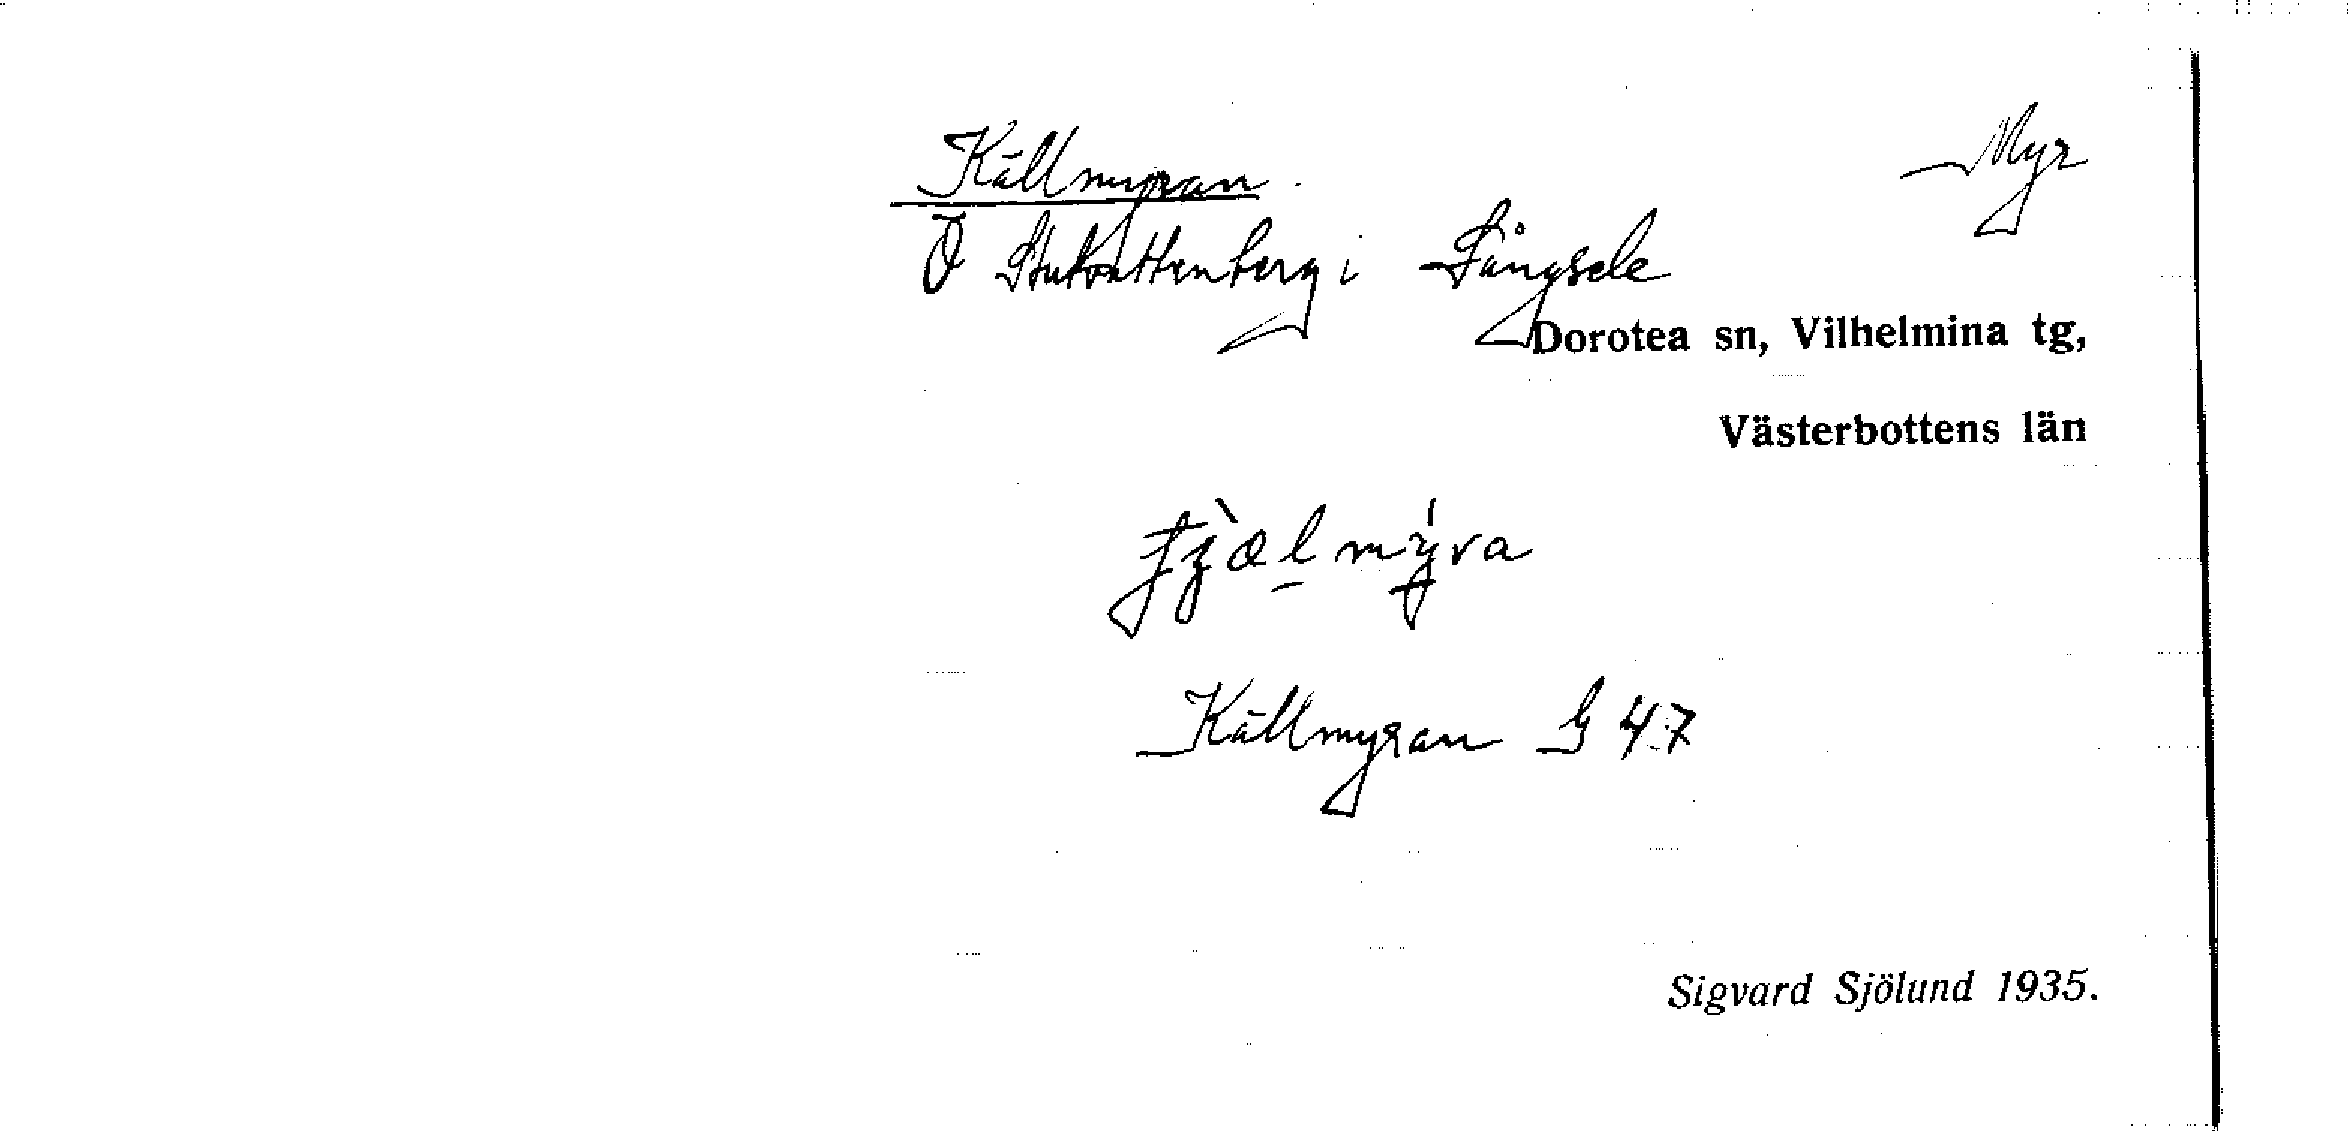 Källmyran. Myr
Ö Stutvattenberg i Långsele
Dorotea sn, Vilhelmina tg,
Västerbottens län
Källmyran G 47
Sigvard Sjölund 1935.